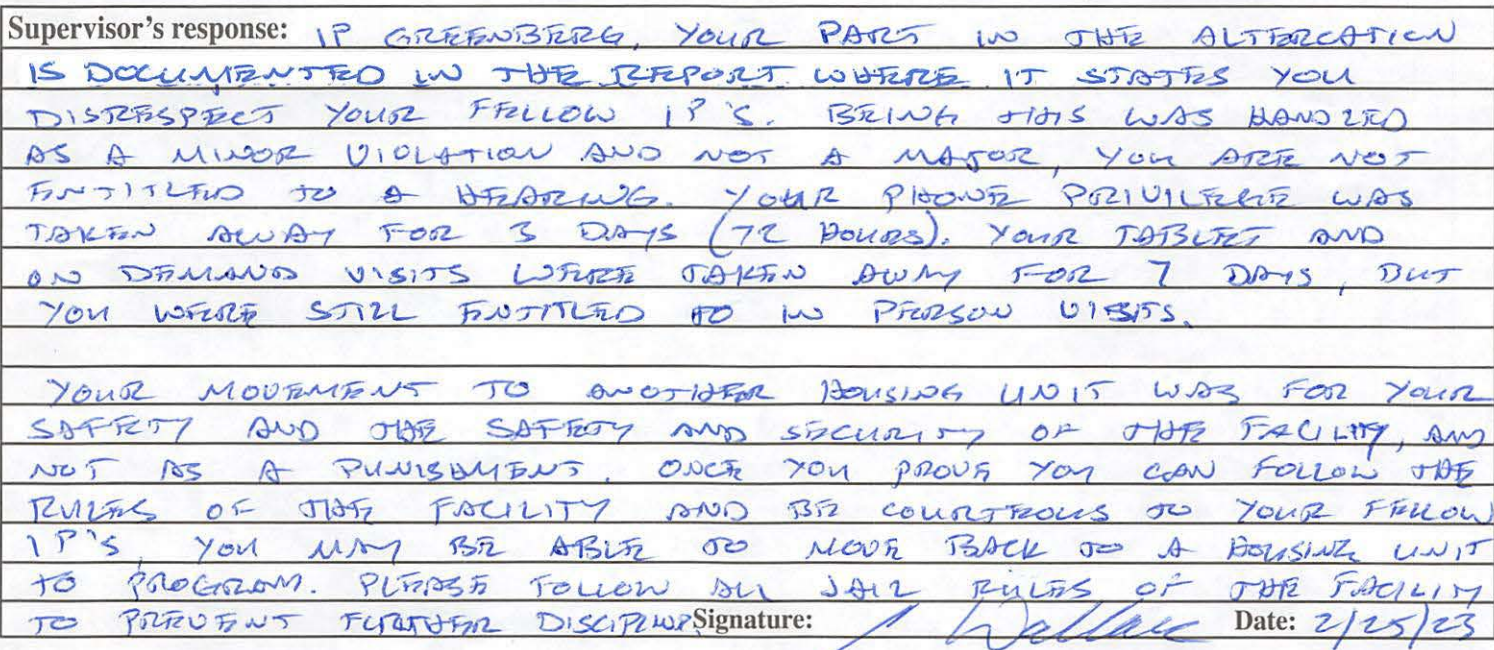 Supervisor's response: IP GREENBERG, YOUR PART IN THE ALTERCATION
IS DOCUMENTED IN THE REPORT WHERE IT STATES YOU
DISRESPECT YOUR FELLOW IP'S. BEING THIS WAS HANDLED
AS A MINOR VIOLATION AND NOT A MAJOR, YOU ARE NOT
ENTITLED TO A HEARING. YOUR PHONE PRIVILEGE WAS
TAKEN AWAY FOR 3 DAYS (72 HOURS). YOUR TABLET AND
ON DEMAND VISITS WERE TAKEN AWAY FOR 7 DAYS, BUT
YOU WERE STILL ENTITLED TO IN PERSON VISITS.
YOUR MOVEMENT TO ANOTHER HOUSING UNIT WAS FOR YOUR
SAFETY AND THE SAFETY AND SECURITY OF THE FACILITY, AND
NOT AS A PUNISHMENT. ONCE YOU PROVE YOU CAN FOLLOW THE
RULES OF THE FACILITY AND BE COURTEOUS TO YOUR FELLOW
IP'S, YOU MAY BE ABLE TO MOVE BACK TO A HOUSING UNIT
TO PROGRAM. PLEASE FOLLOW ALL JAIL RULES OF THE FACILITY
TO PREVENT FURTHER DISCIPLINE. Signature: Wallace Date: 2/25/23